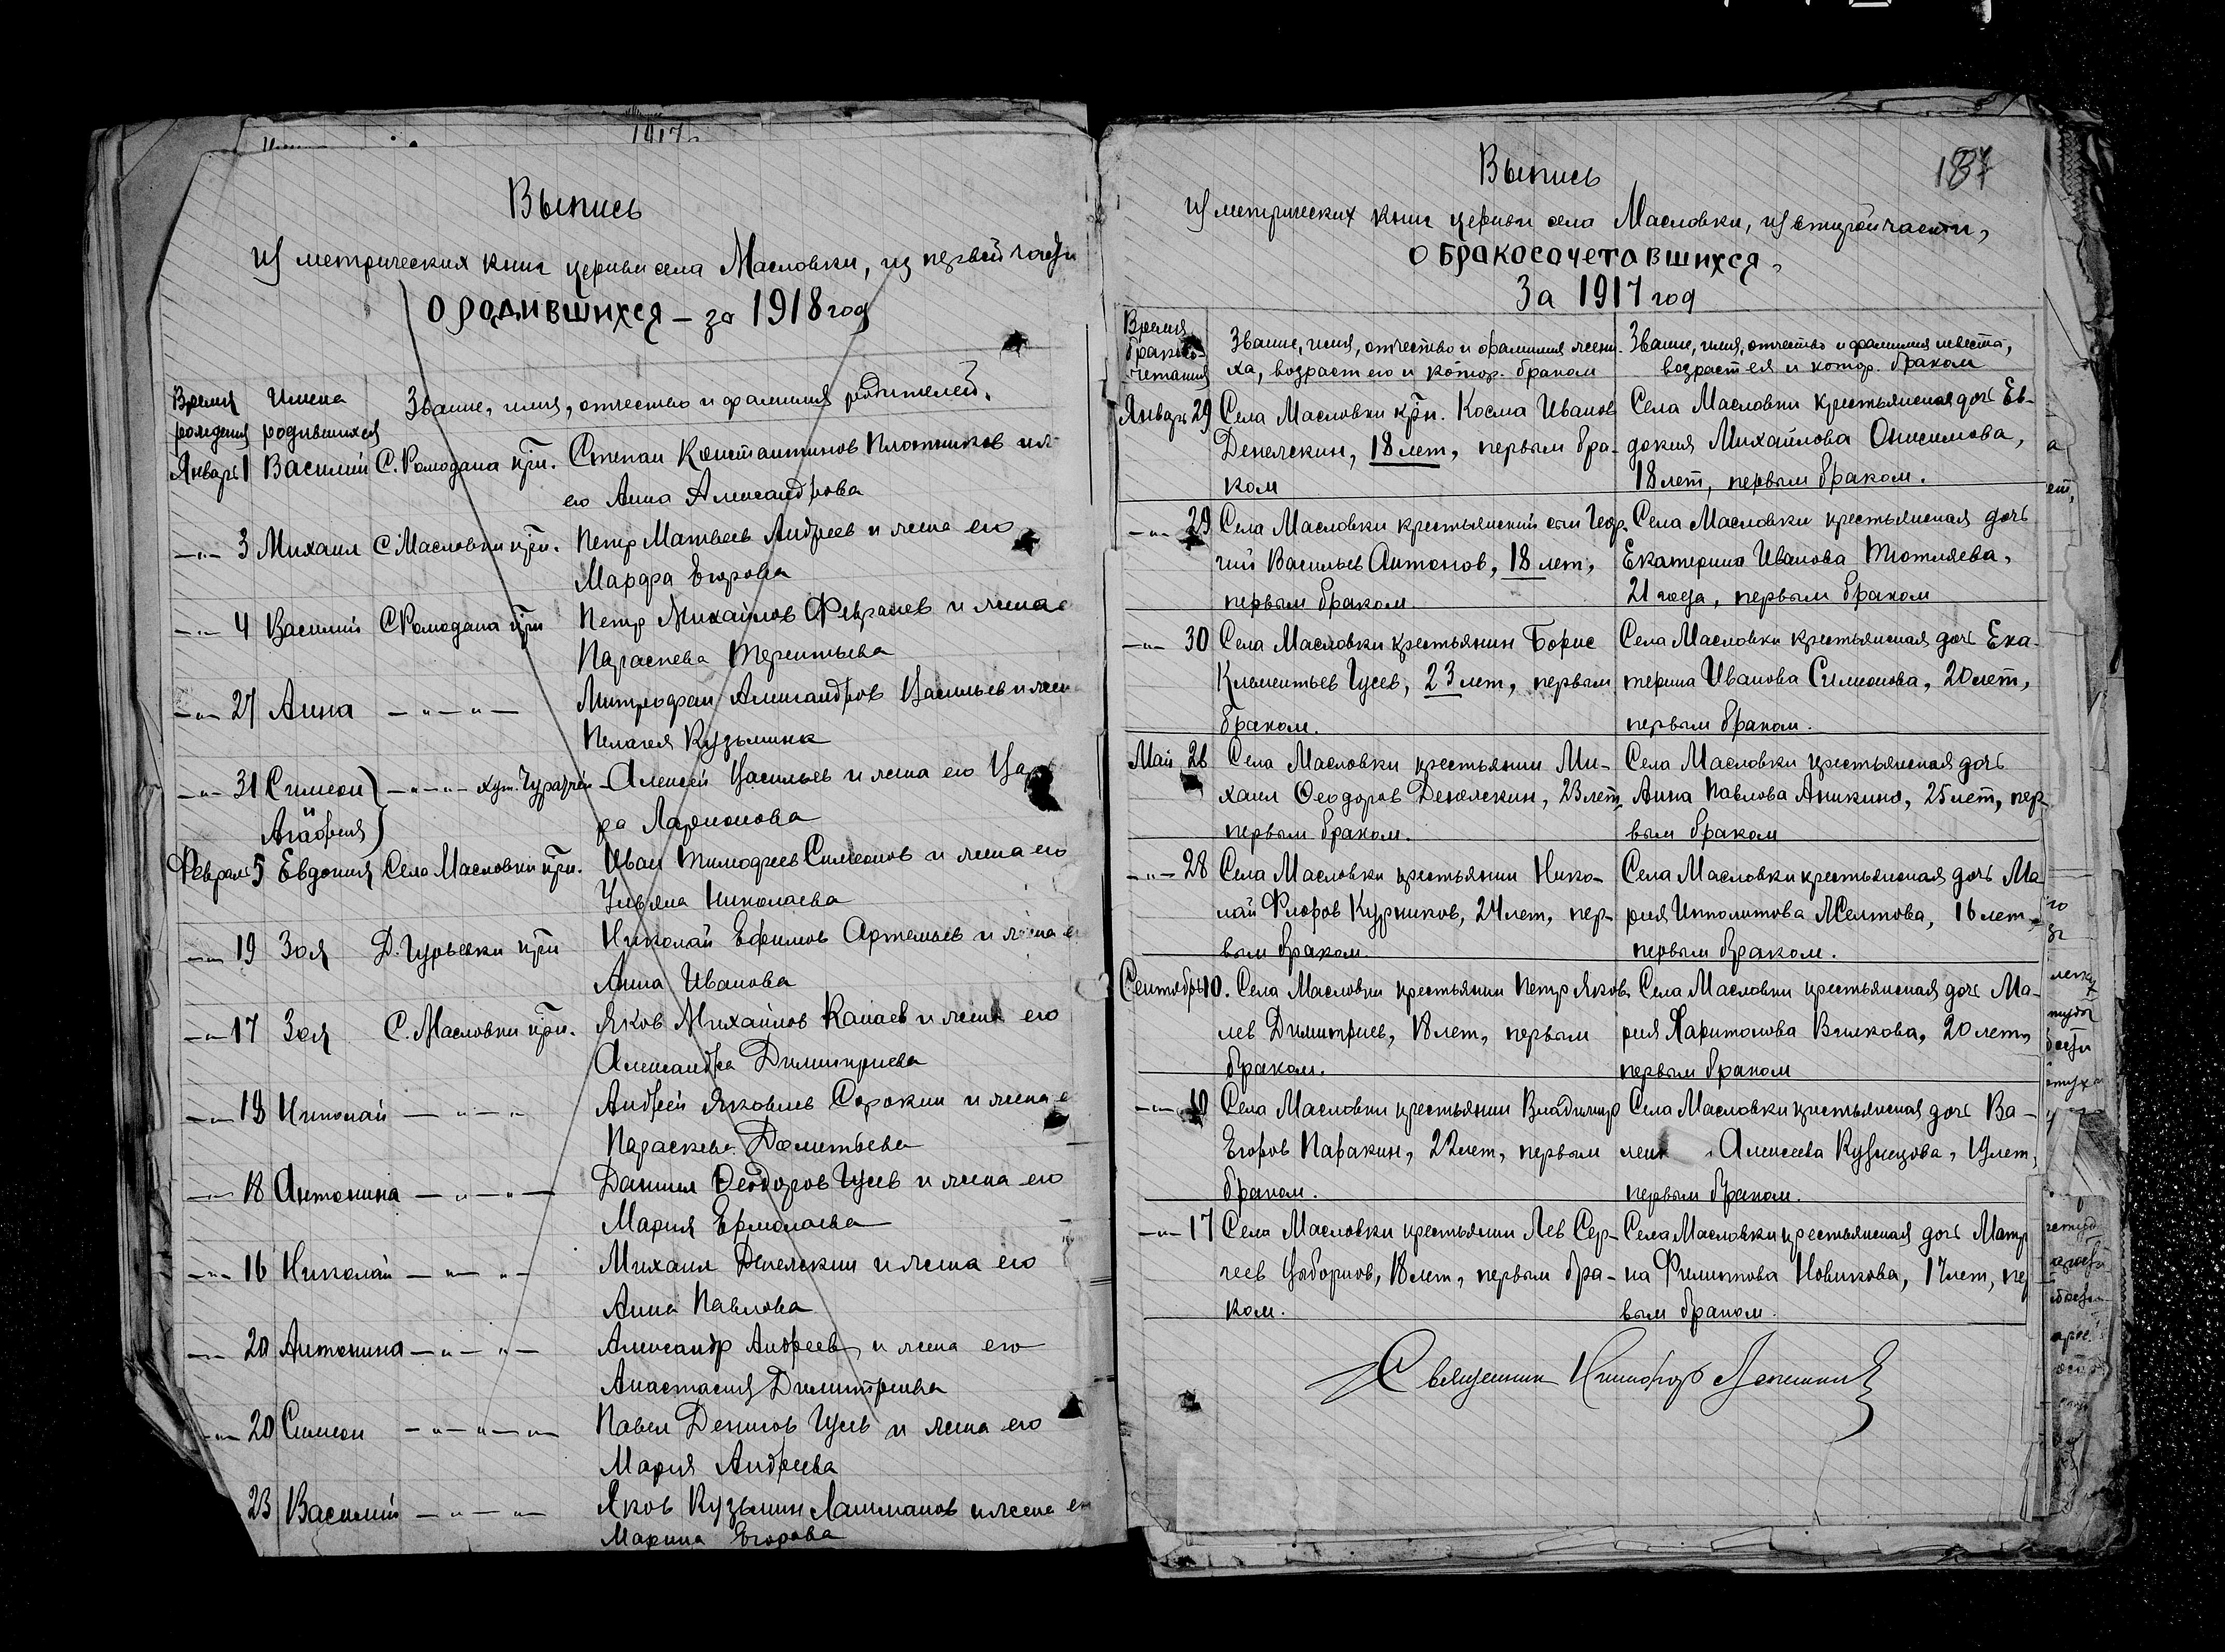 1917г.
Выпись
из метрических книг церкви села Масловки, из первой части
о родившихся – за 1918 год
Время рождения
Имена родившихся
Звание, имя, отчество и фамилия родителей.
Январь 1 Василий С. Ромодана крн. Степан Константинов Плотников и ж.
его Анна Александрова
–"– 3 Михаил С. Масловки крн. Петр Матвеев Андреев и жена его
Марфа Егорова
–"– 4 Василий С. Ромодана крн Петр Михайлов и жена
Параскева Терентьева
–"– 27 Анна –"–"– Митрофан Александров Васильев и жен
Пелагея Кузьмина
–"– 31 Симеон) –"–"– хут. Алексей Васильев и жена его
Агафия) Ларионова
Февраль 5 Евдокия Села Масловки крн. Иван Тимофеев Симеонов и жена его
Ульяна Николаева
–"– 19 Зоя Д. Гурьевки крн Николай Ефимов Артемьев и жена е
Анна Иванова
–"– 17 Зоя С. Масловки крн. Яков Михайлов Канаев и жена его
Александра Димитриева
–"– 19 Николай –"–"– Андрей Яковлев Сорокин и жена е
Параскева Дометьева
–"– 18 Антонина –"–"– Даниил Феодоров Гусев и жена его
Мария Ермолаева
–"– 16 Николай –"–"– Михаил Денелскин и жена его
Анна Павлова
–"– 20 Антонина –"–"– Александр Андреев и жена его
Анастасия Димитриева
–"– 20 Симеон –"–"–"– Павел Денисов Гусев и жена его
Мария Андреева
23 Василий –"–"– Яков Кузьмин Лашманов и жена ег
Марина Егорова
187
Выпись
из метрических книг церкви села Масловки, из второй части,
о бракосочетавшихся,
За 1917 год
Время бракосо-четания
Звание, имя, отчество и фамилия жени-
ха, возраст его и котор. браком
Звание, имя, отчество и фамилия невесты,
возраст ея и котор. браком
Январь 29 Села Масловки крн. Косма Иванов Села Масловки крестьянская дочь Ев-
Денелскин, 18 лет, первым бра- докия Михайлова Онисимова,
ком 18 лет, первым браком.
–"– 29 Села Масловки крестьянский сын Геор- Села Масловки крестьянская дочь
гий Васильев Антонов, 18 лет, Екатерина Иванова Тютляева,
первым браком. 21 года, первым браком
–"– 30 Села Масловки крестьянин Борис Села Масловки крестьянская дочь Ека-
Клементьев Гусев, 23 лет, первым терина Иванова Симеонова, 20 лет,
браком. первым браком.
Май 26 Села Масловки крестьянин Ми- Села Масловки крестьянская дочь
хаил Феодоров Денелскин, 23 лет, Анна Павлова Аникина, 25 лет, пер-
первым браком. вым браком
–"– 28 Села Масловки крестьянин Нико- Села Масловки крестьянская дочь Ма
лай Флоров Курников, 24 лет, пер- рия Ипполитова Желтова, 16 лет,
вым браком. первым браком.
Сентябрь 10. Села Масловки крестьянин Петр Яков- Села Масловки крестьянская дочь Ма-
лев Димитриев, 18 лет, первым рия Харитонова Вилкова, 20 лет,
браком. первым браком
–"– 10 Села Масловки крестьянин Владимир Села Масловки крестьянская дочь Ва-
Егоров Паракин, 22 лет, первым Алексеева Кузнецова, лет,
браком. первым браком.
–"– 17 Села Масловки крестьянин Лев Сер- Села Масловки крестьянская дочь Матр
геев 18 лет, первым бра- на Филиппова Новикова, 17 лет, пер
ком. вым браком.
Священник Никифор